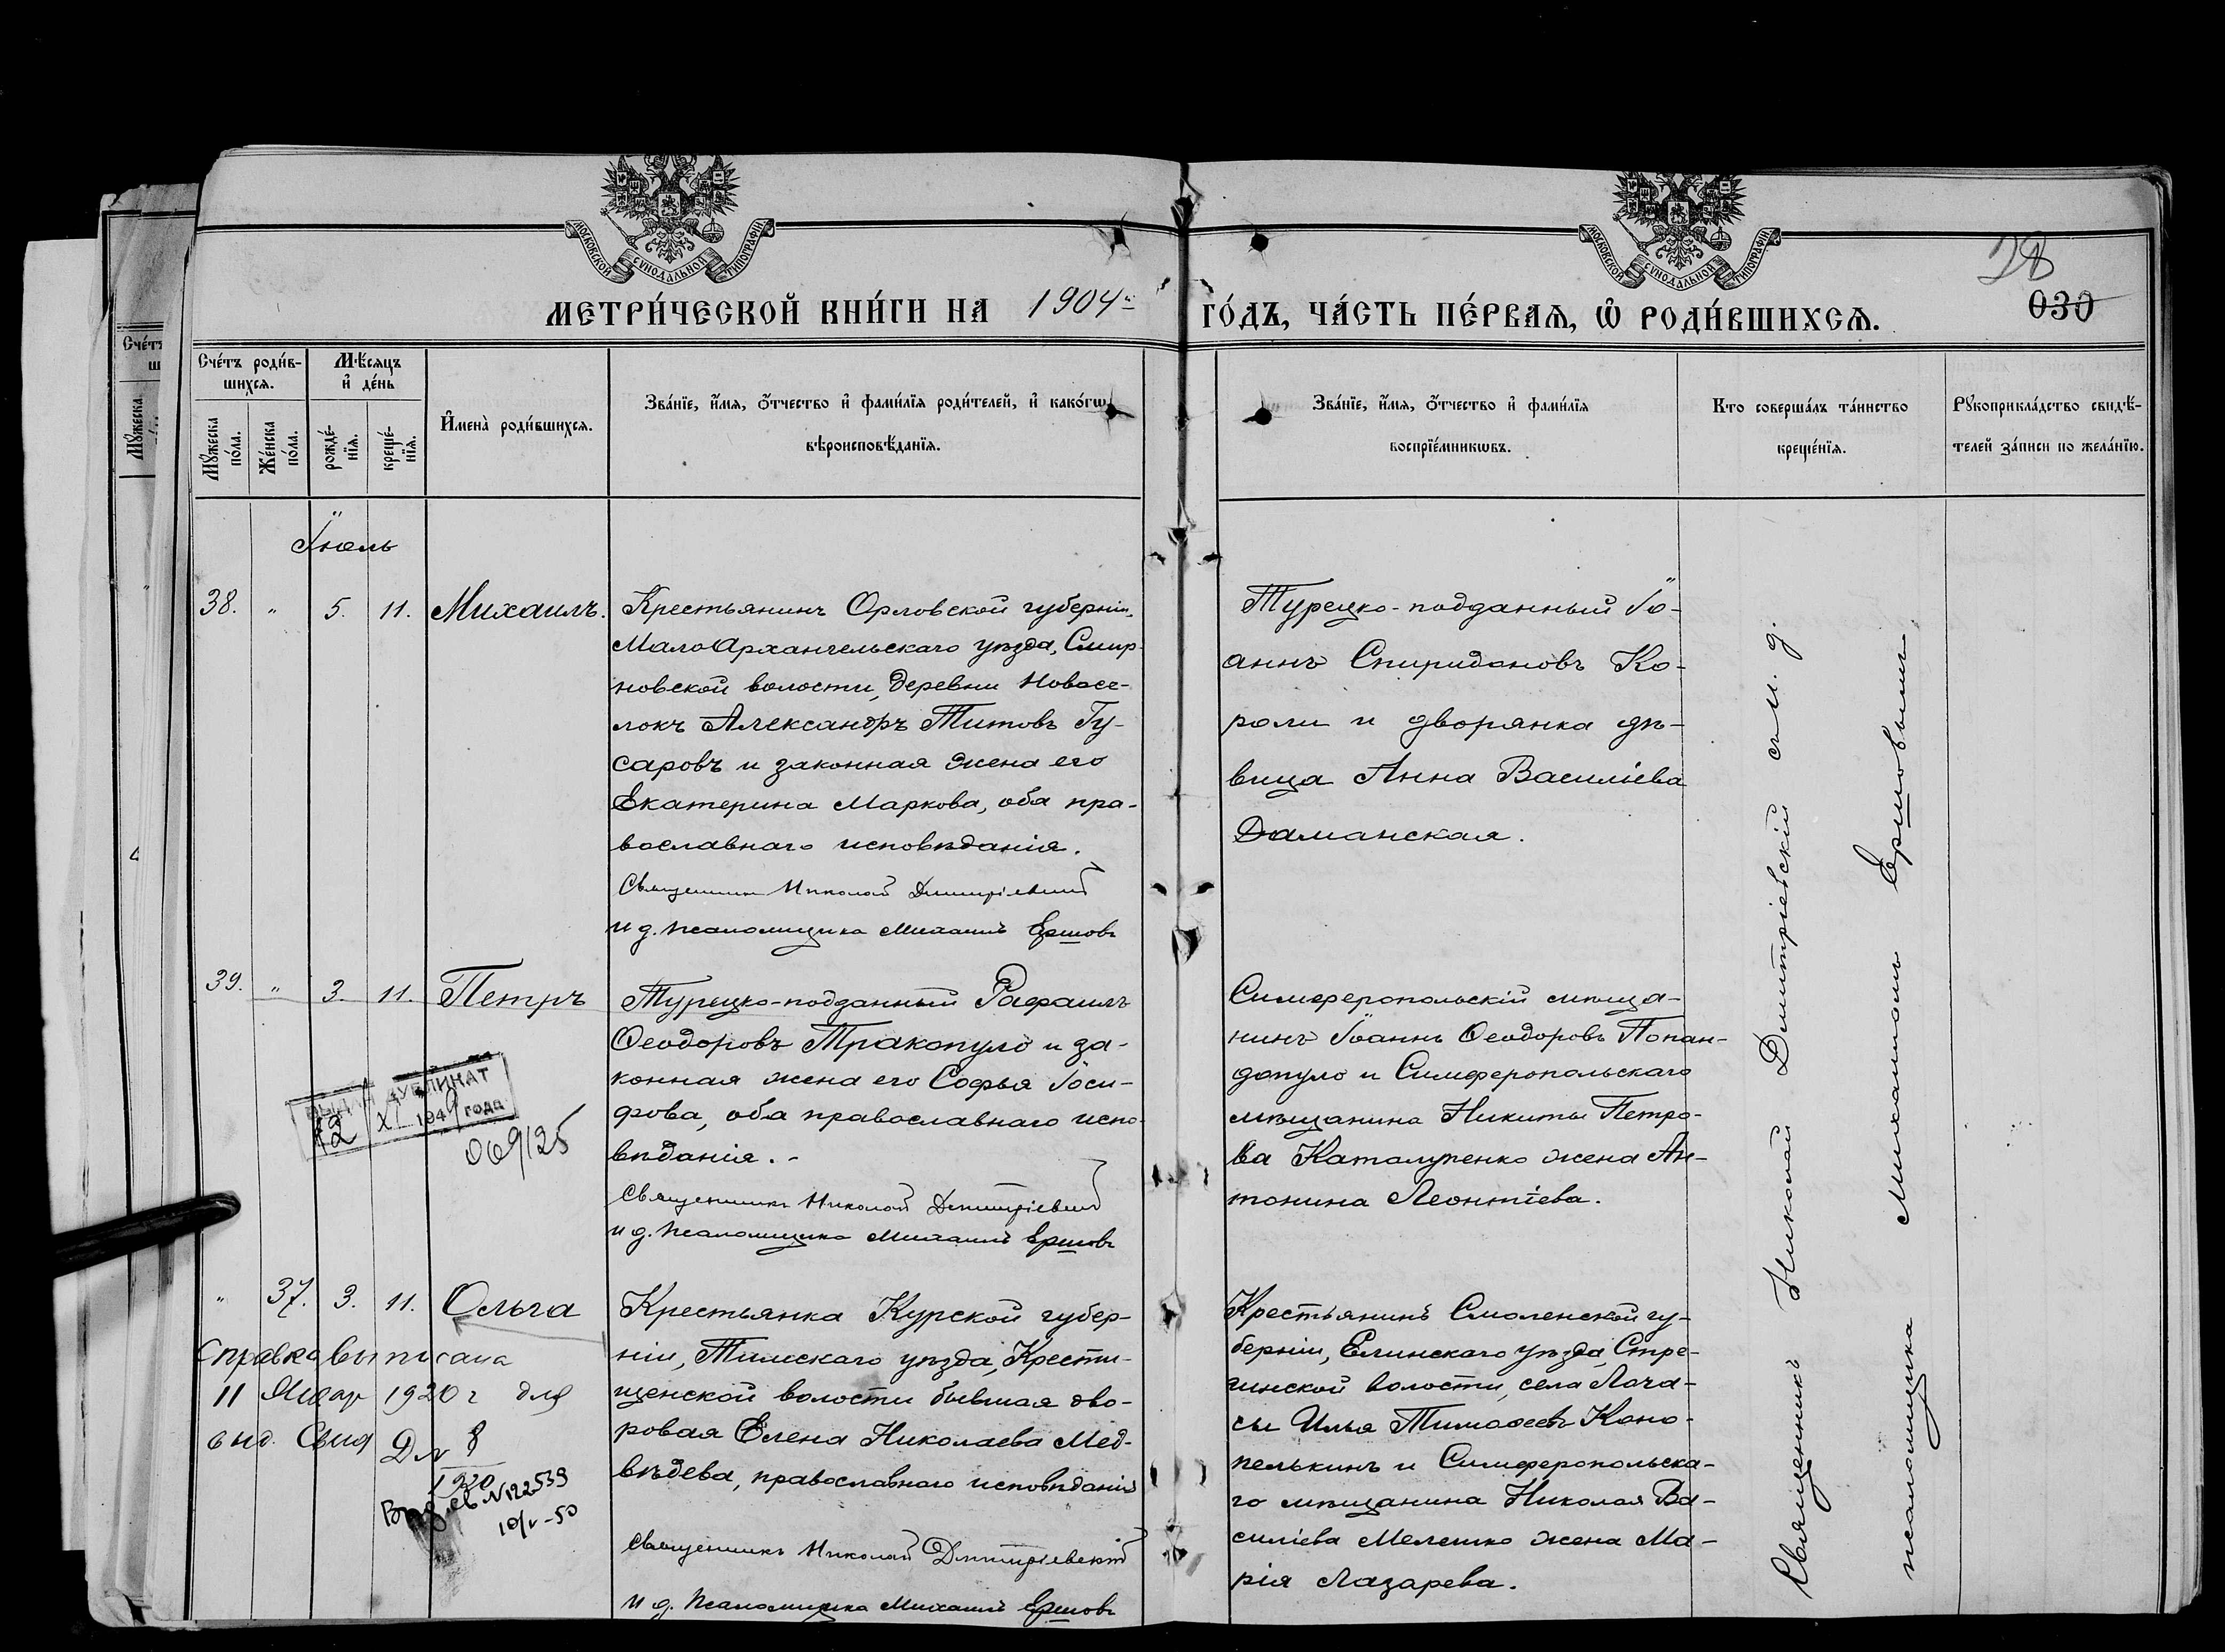 МОСКОВСКОЙ СѴНОДАЛЬНОЙ ТИПОГРАФІИ
МОСКОВСКОЙ СѴНОДАЛЬНОЙ ТИПОГРАФІИ
28
МЕТРИ́ЧЕСКОЙ КНИ́ГИ НА 1904й
ГО́ДЪ, ЧА́СТЬ ПЕ́РВАѦ, Ѡ҆ РОДИ́ВШИХСѦ.
030
Сче́тъ роди́в-
шихсѧ.
Мꙋ́жеска
по́ла.
Же́нска
по́ла.
Мѣ́сѧцъ
и҆ де́нь
рожде́-
нїѧ.
креще́-
нїѧ.
И҆мена̀ роди́вшихсѧ.
Зва́нїе, и҆́мѧ, ѻ҆́тчество и҆ фами́лїѧ роди́телей, и҆ како́гѡ
вѣроисповѣ́данїѧ.
Зва́нїе, и҆́мѧ, ѻ҆́тчество и҆ фами́лїѧ
воспрїе́мникѡвъ.
Кто соверша́лъ та́инство
креще́нїѧ.
Рꙋкоприкла́дство свидѣ́-
телей за́писи по жела́нїю.
Іюль
38. " 5. 11. Михаилъ.
Крестьянинъ Орловской губерніи,
МалоАрхангельскаго уѣзда, Смир-
новской волости, деревни Новосе-
локъ Александръ Титовъ Гу-
саровъ и законная жена его
Екатерина Маркова, оба пра-
вославнаго исповѣданія.
Священникъ Николай Димитріевскій
И д. псаломщика Михаилъ Ершовъ
Турецко-подданный Іо-
аннъ Спиридоновъ Ко-
роли и дворянка дѣ-
вица Анна Василіева
Даманская.
39. " 3. 11. Петръ
Турецко-подданный Рафаилъ
Ѳеодоровъ Тракопуло и за-
конная жена его Софья Іоси-
фова, оба православнаго испо-
вѣданія.-
Священникъ Николай Димитріевскій
И д. псаломщика Михаилъ Ершовъ
Симферопольскій мѣща-
нинъ Іоаннъ Ѳеодоровъ Попан-
допуло и Симферопольскаго
мѣщанина Никиты Петро-
ва Каталупенко жена Ан-
тонина Леонтіева.
ДУБЛИКАТ
12/XI 1949 года
069125
" 37. 3. 11. Ольга
Крестьянка Курской губер-
ніи, Тимскаго уѣзда, Крести-
щенской волости бывшая дво-
ровая Елена Николаева Мед-
вѣдева, православнаго исповѣданія
Священникъ Николай Димитріевскій
И д. псаломщика Михаилъ Ершовъ
Крестьянинъ Смоленской гу-
берніи, Елинскаго уѣзда, Стре-
гинской волости, села Лога-
сы Илья Тимоѳеевъ Коно-
пелькинъ и Симферопольска-
го мѣщанина Николая Ва-
силіева Мелешко жена Ма-
рія Лазарева.
Справка выписана
11 Январ 1920 г для
выд. Свид
1920
№122539
10/V-50
Священникъ Николай Димитріевскій с и. д.
псаломщика Михаиломъ Ершовымъ